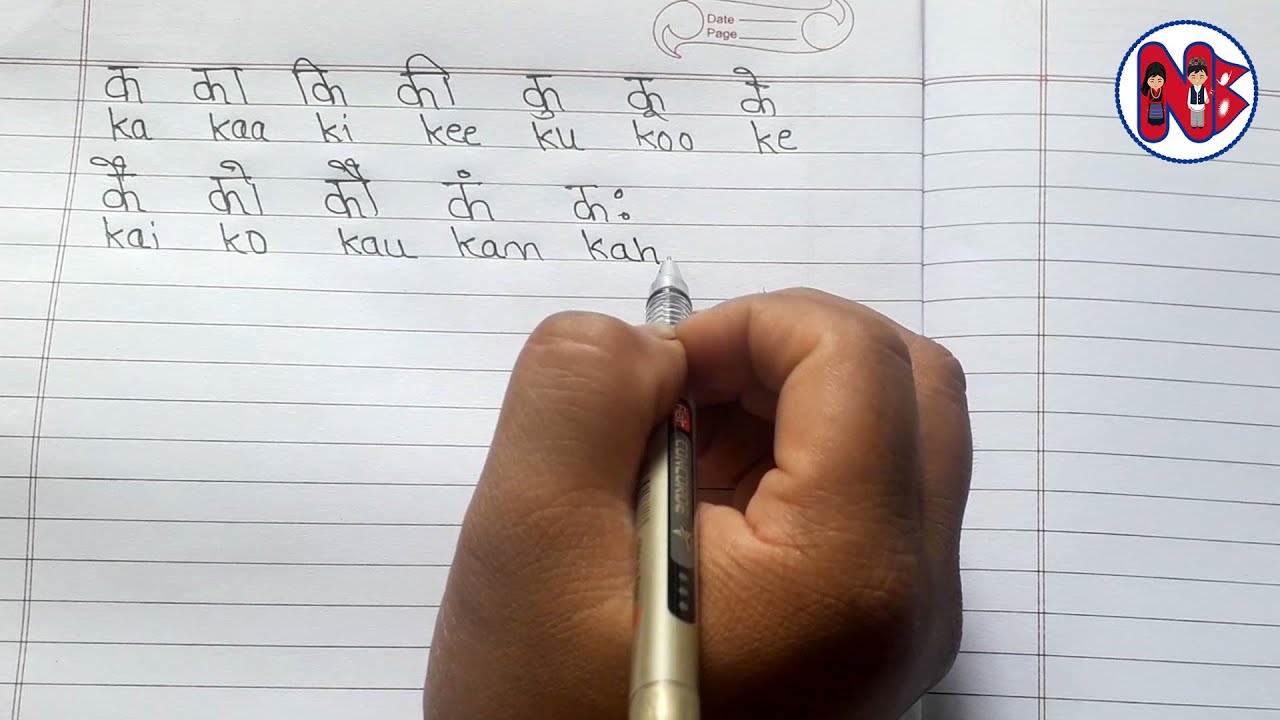 Date
Page
क का कि की कु कू के
ka kaa ki kee ku koo ke
कै को कौ कं कः
kai ko kau kam kah
CONCORDE
N